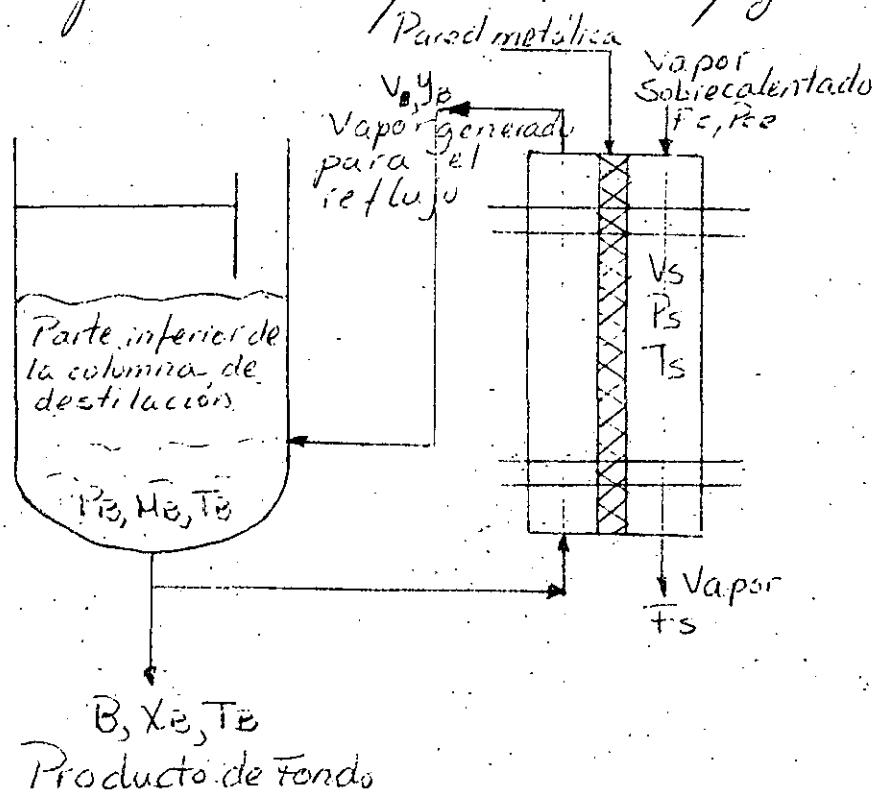 Pared metálica
Vapor
Sobrecalentado
Fe, Pce
VB, yB
Vapor generado
para el
reflujo
Vs
Ps
Ts
Parte inferior de
la columna de
destilación
PB, MB, TB
Vapor
Fs
B, XB, TB
Producto de Fondo